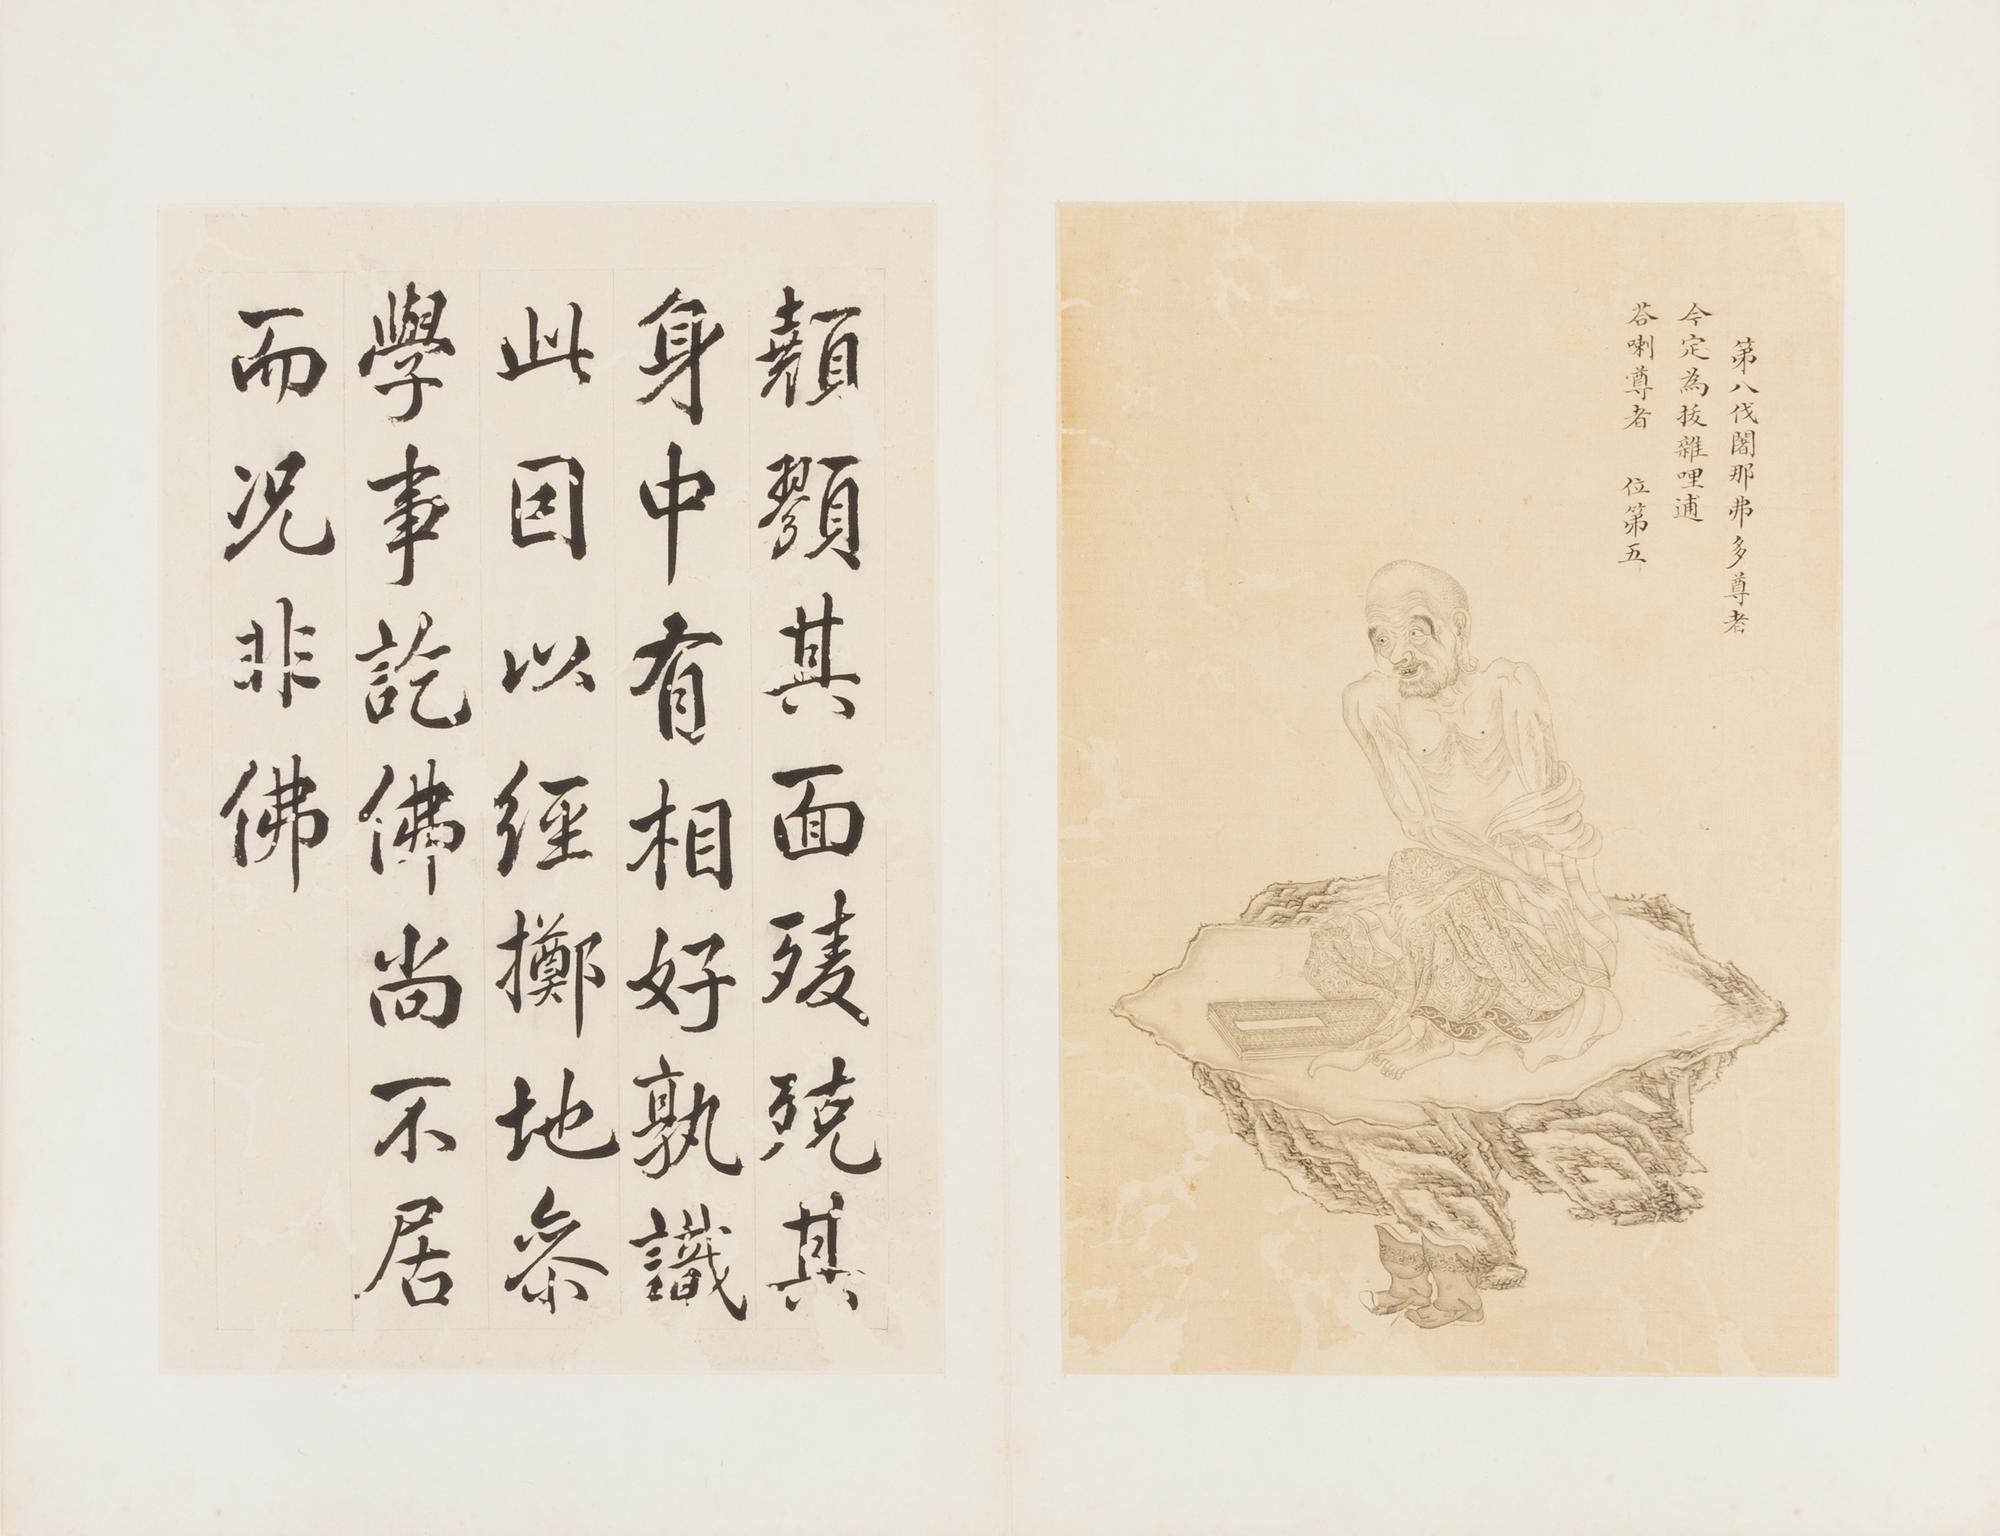 第八伐闍那弗多尊者
今定為拔雜哩逋
荅喇尊者 位第五
顤顟其面㱥殑其
身中有相好孰識
此因以經擲地叅
學事訖佛尚不居
而况非佛